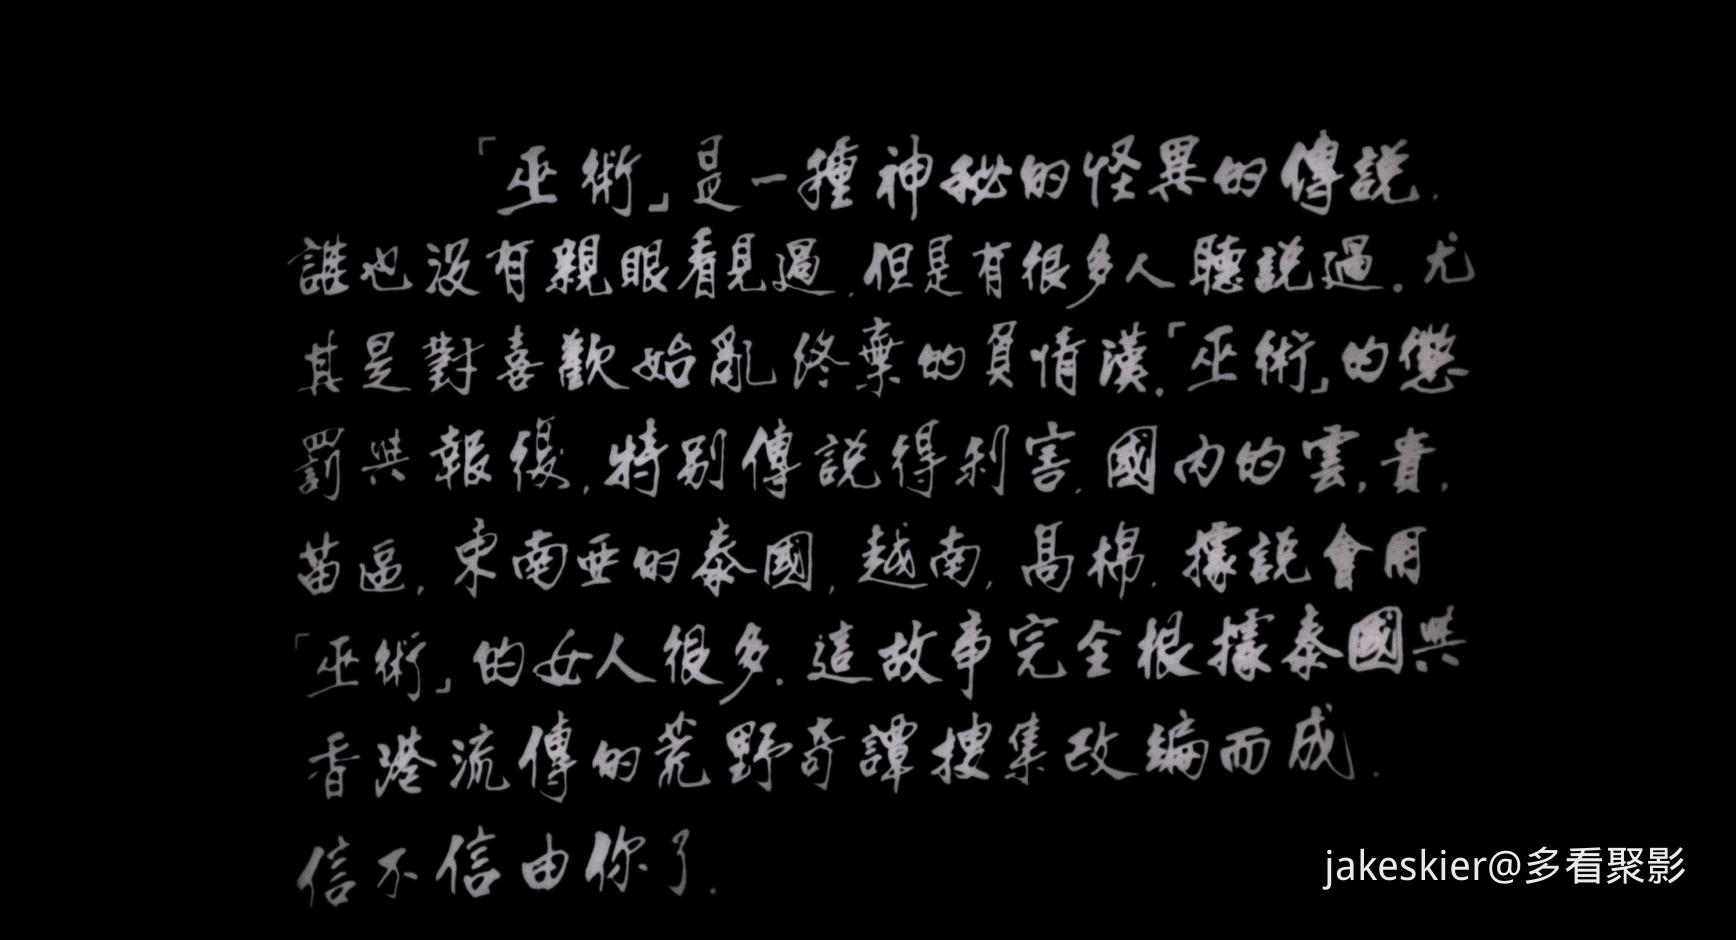 「巫術」是一種神秘的怪異的傳説.
誰也沒有親眼看見過.但是有很多人聽説過.尤
其是對喜歡始亂終棄的負情漢.「巫術」的懲
罰與報復,特别傳説得利害.國内的雲,貴,
苗區,東南亜的泰國,越南,高棉.據説會用
「巫術」的女人很多.這故事完全根據泰國與
香港流傳的荒野奇譚搜集改編而成.
信不信由你了.
jakeskier@多看聚影